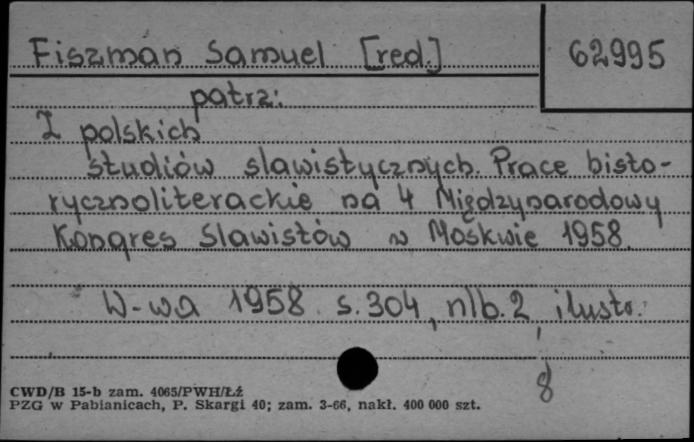 Fiszman Samuel [red.]
62995
patrz:
Z polskich
studiów slawistycznych. Prace histo-
rycznoliterackie na 4 Międzynarodowy
Kongres Slawistów w Moskwie 1958.
W-wa 1958 s. 304, nlb. 2, ilustr.
8
CWD/B 15-b zam. 4065/PWH/Łź
PZG w Pabianicach, P. Skargi 40; zam. 3-66, nakł. 400 000 szt.